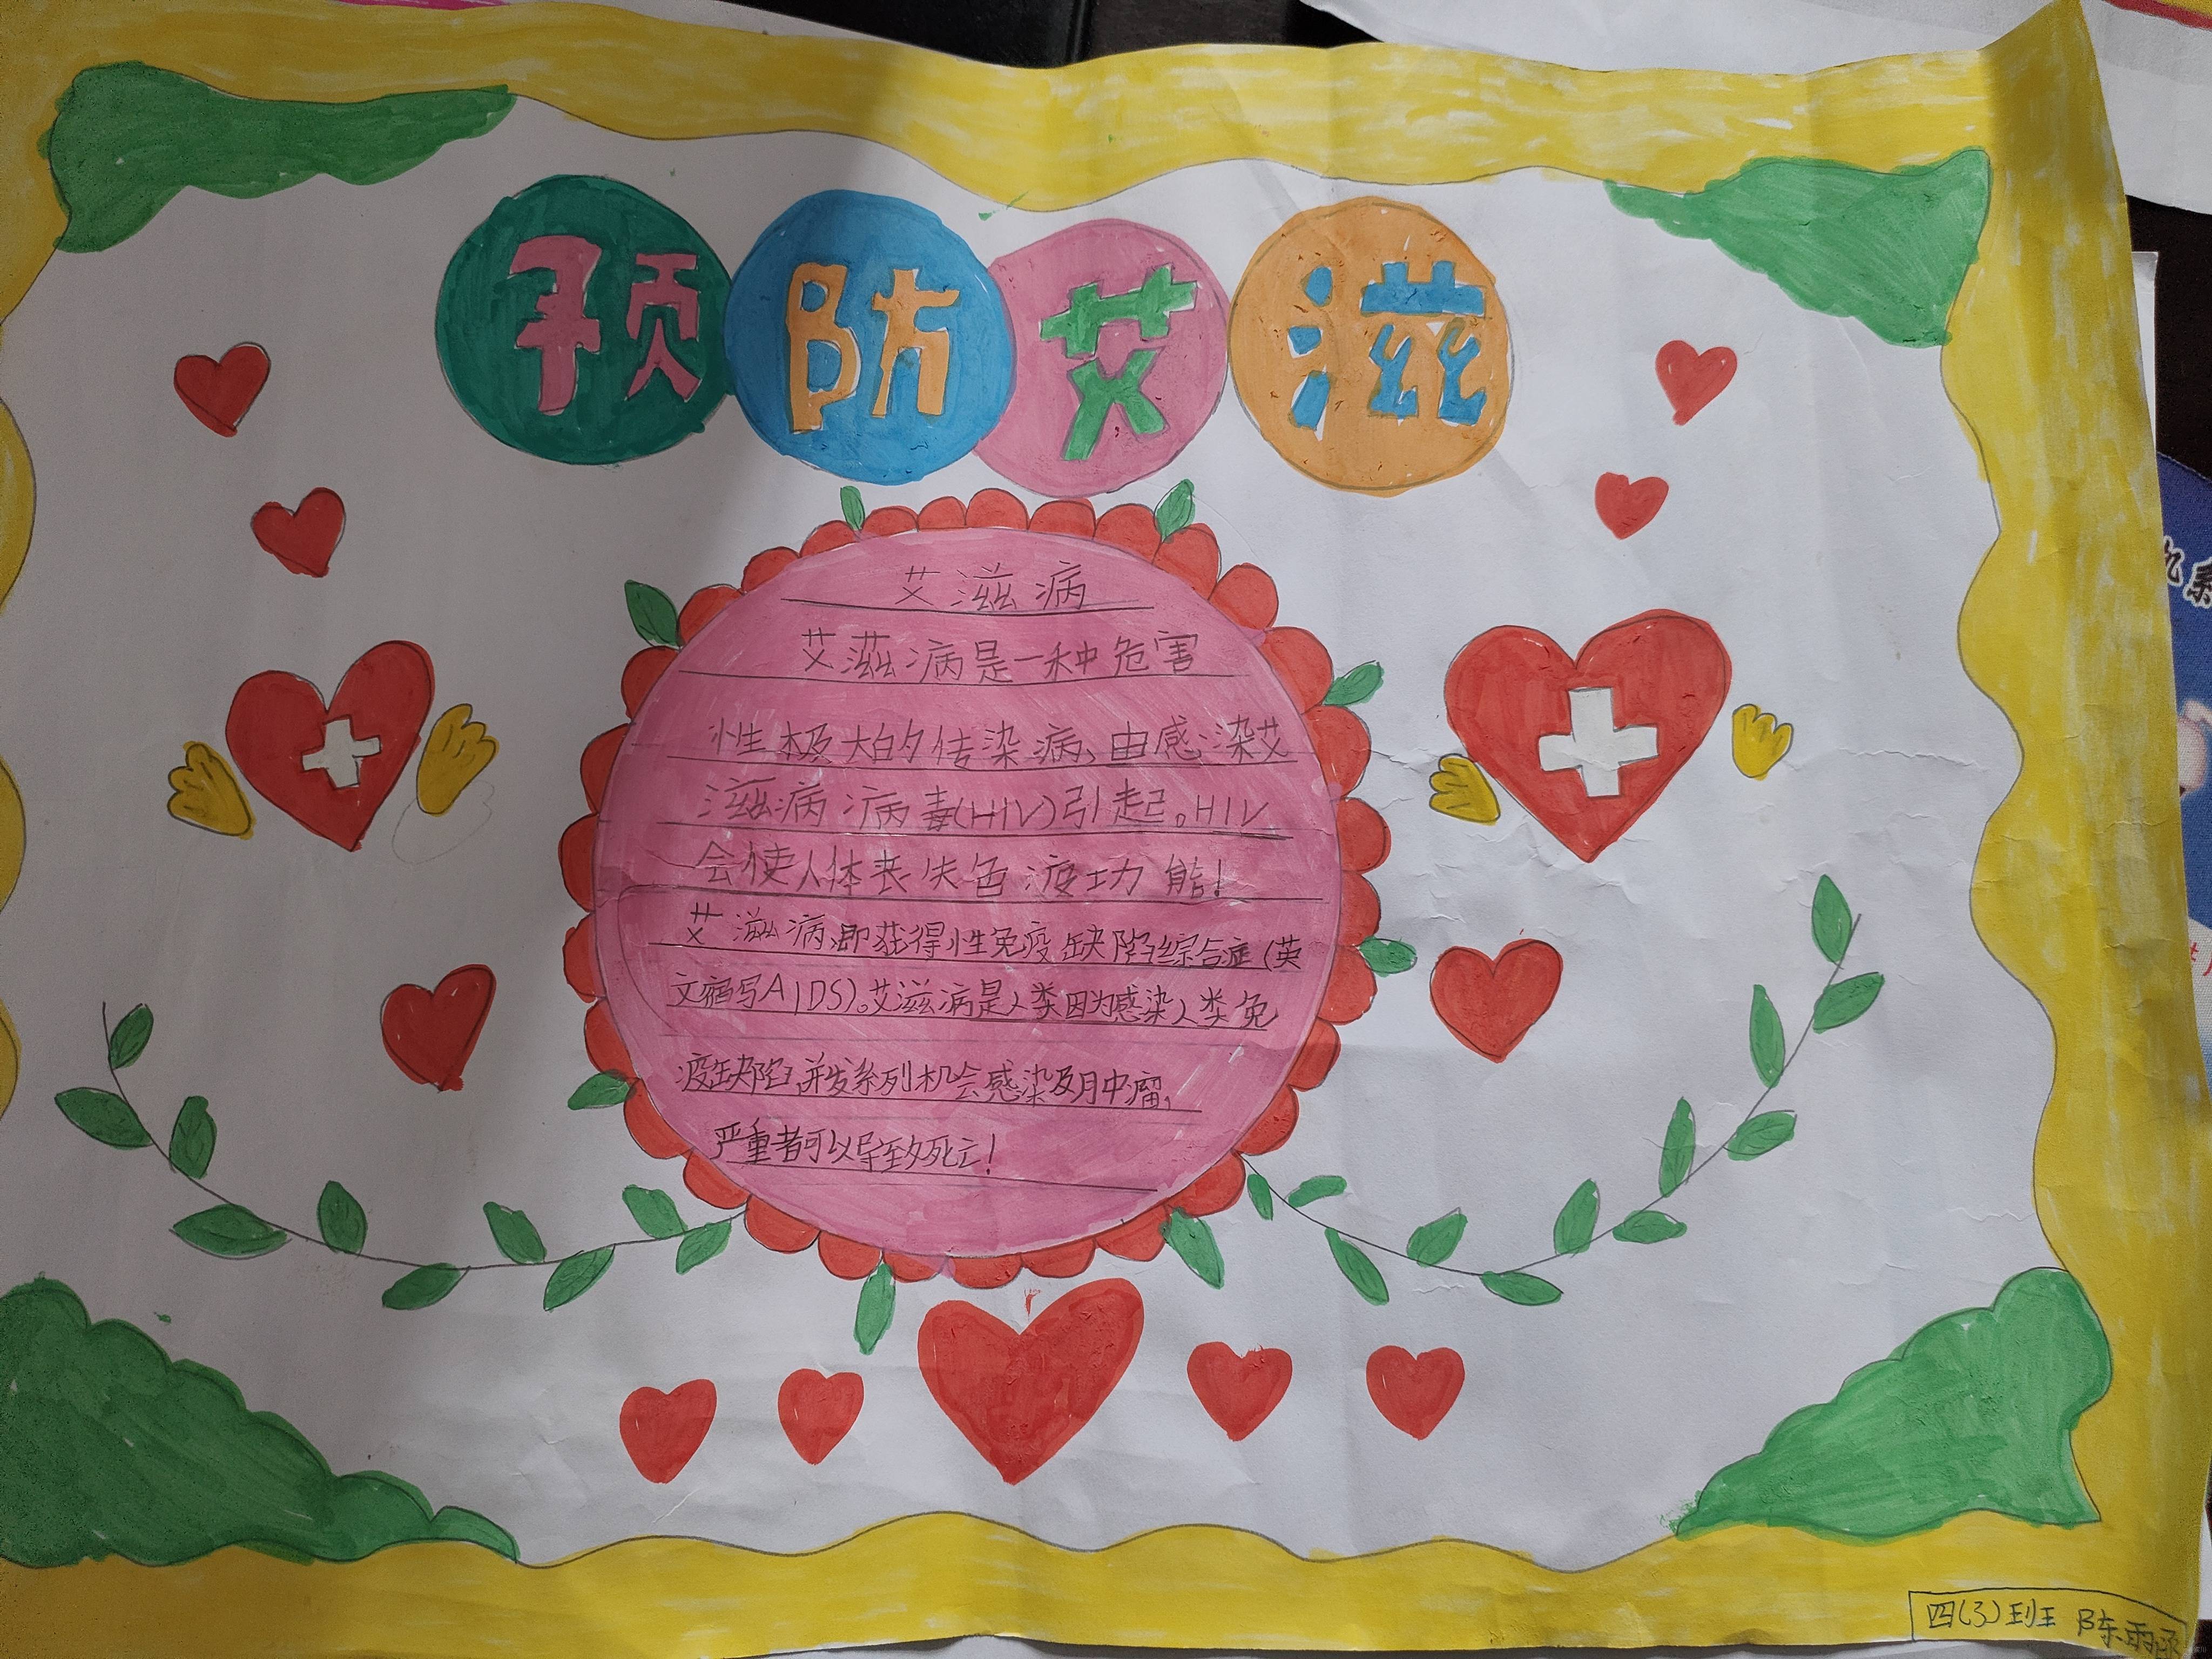 预防艾滋
艾滋病
艾滋病是一种危害
性极大的传染病、由感染艾
滋病病毒(HIV)引起。HIV
会使人体丧失色疫功能!
艾滋病,即获得性免疫缺陷综合症(英
文缩写AIDS)。艾滋病是人类因为感染人类免
疫缺陷,并发系列机会感染及肿瘤,
严重者可以导致死亡!
四(3)班 陈雨